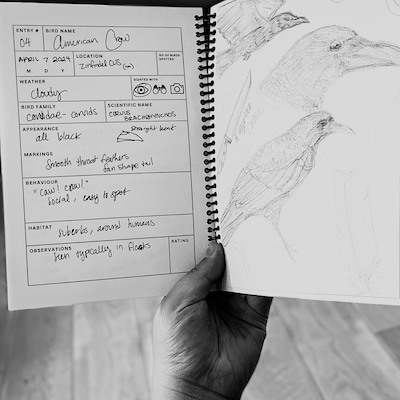 ENTRY #
04
BIRD NAME
American Crow
APRIL 7 2024
M D Y
LOCATION
NO OF BIRDS SPOTTED
WEATHER
cloudy
SIGHTED WITH
BIRD FAMILY
corvidae - corvids
SCIENTIFIC NAME
CORVUS
BRACHYRHYNCHOS
APPEARANCE
all black
straight beak
MARKINGS
smooth throat feathers
fan shape tail
BEHAVIOUR
"caw! caw!"
social, easy to spot
HABITAT
suburbs, around humans
OBSERVATIONS
seen typically in flocks
RATING